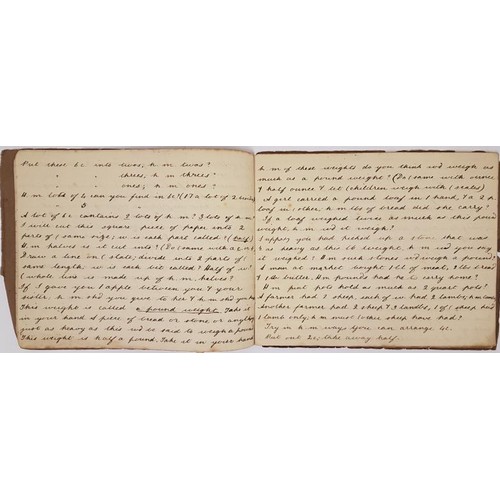 Put these 6c into twos, h m twos?
" " threes, h m threes?
" " ones, h m ones?
H. m lots of 6 can you find in
A lot of 6c contains 2 lots of h m? 3 lots of h m?
I will cut this square piece of paper into 2
parts of / same size; w is each part called? (half)
H. m halves is it cut into? (Do / same with a
Draw a line on / slate; divide into 2 parts of /
same length; w is each bit called? Half of w?
(whole line is made up of h. m. halves?
If I gave you 1 apple between you & your
sister, h m shd you give to her & h m shd you
This weight is called a pound weight. Take it
in your hand. A piece of bread or stone or any
just as heavy as this wd be said to weigh a pound
This weight is half a pound. Take it in your hand
h m of these weights do you think wd weigh as
much as a pound weight? (Do / same with ounce
& half ounce & let / children weigh with / scales)
A girl carried a pound loaf in 1 hand, & a 2 p.
loaf in / other, h m lbs of bread did she carry?
If a loaf weighed twice as much as this pound
weight, h m wd it weigh?
Suppose you had picked up a stone that was
½ as heavy as this lb weight, h m wd you say
it weighed? H m such stones wd weigh a pound?
A man at market bought 1 lb of meat, 2 lbs bread
& 1 lb butter, H m pounds had he to carry home?
H m pint pots hold as much as 2 quart pots?
A farmer had 2 sheep, each of w had 2 lambs; h m
another farmer had 2 sheep & 3 lambs, 1 of / sheep had
1 lamb only, h m must / other sheep have had?
Try in h. m ways you can arrange 6c.
Put out 2c, take away half.